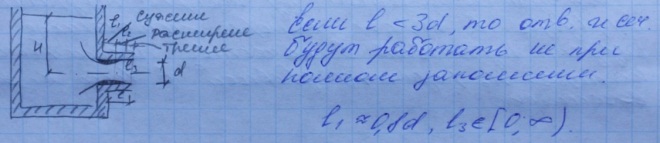 сжатие
расширение
трение
l₁
l₂
l₃
H
d
Если l < 3d, то отв. и
будут работать не при
полном заполнении.
l₁ ≈ 0,8d, l₃ ∈ [0; ∞).